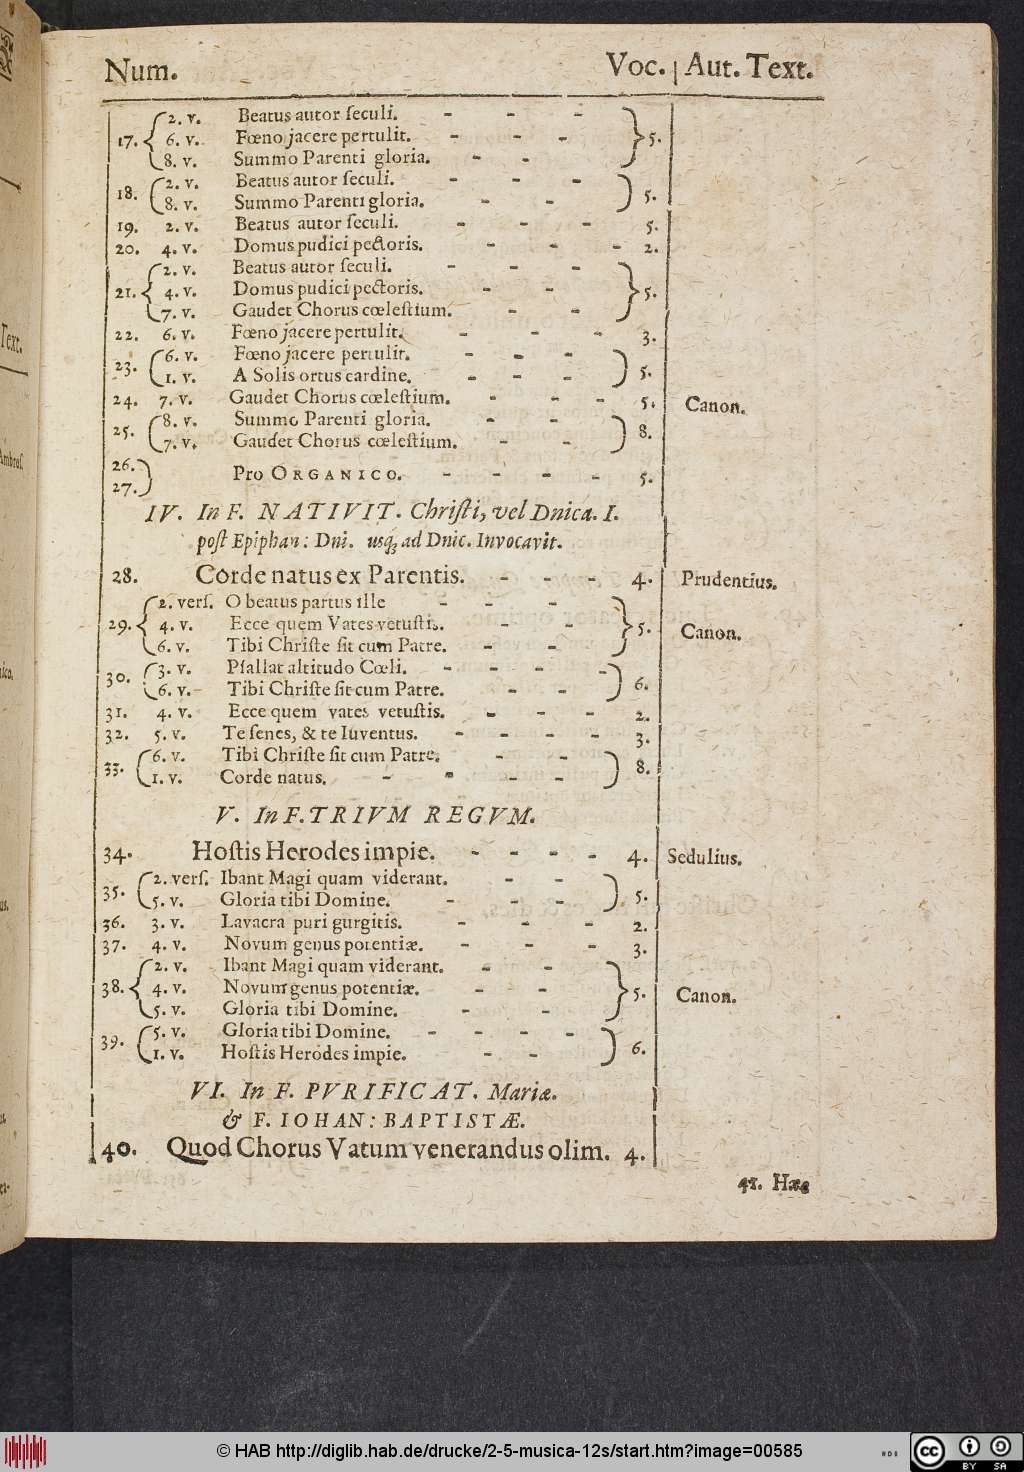 Num. Voc. Aut. Text.
17. 2. v. Beatus autor ſeculi. - - - 5.
6. v. Fœno jacere pertulit. - - -
8. v. Summo Parenti gloria. - -
18. 2. v. Beatus autor ſeculi. - - - 5.
8. v. Summo Parenti gloria. - -
19. 2. v. Beatus autor ſeculi. - - - 5.
20. 4. v. Domus pudici pectoris. - - - 2.
21. 2. v. Beatus autor ſeculi. - - - 5.
4. v. Domus pudici pectoris. - -
7. v. Gaudet Chorus cœleſtium. - -
22. 6. v. Fœno jacere pertulit. - - - 3.
23. 6. v. Fœno jacere pertulit. - - - 5.
1. v. A Solis ortus cardine. - - -
24. 7. v. Gaudet Chorus cœleſtium. - - - 5. Canon.
25. 8. v. Summo Parenti gloria. - - 8.
7. v. Gaudet Chorus cœleſtium. - -
26.
27. Pro ORGANICO. - - - - 5.
IV. In F. NATIVIT. Chriſti, vel Dnica. I.
poſt Epiphan: Dni. usq; ad Dnic. Invocavit.
28. Corde natus ex Parentis. - - - 4. Prudentius.
29. 2. verſ. O beatus partus ille - - - 5. Canon.
4. v. Ecce quem Vates vetuſtis. - -
6. v. Tibi Chriſte ſit cum Patre. - -
30. 3. v. Pſallat altitudo Cœli. - - - - 6.
6. v. Tibi Chriſte ſit cum Patre. - -
31. 4. v. Ecce quem vates vetuſtis. - - - 2.
32. 5. v. Te ſenes, & te Iuventus. - - - - 3.
33. 6. v. Tibi Chriſte ſit cum Patre. - - 8.
1. v. Corde natus. - - - -
V. In F. TRIVM REGVM.
34. Hoſtis Herodes impie. - - - - 4. Sedulius.
35. 2. verſ. Ibant Magi quam viderant. - - 5.
5. v. Gloria tibi Domine. - - -
36. 3. v. Lavacra puri gurgitis. - - - 2.
37. 4. v. Novum genus potentiæ. - - - 3.
38. 2. v. Ibant Magi quam viderant. - - 5. Canon.
4. v. Novum genus potentiæ. - -
5. v. Gloria tibi Domine. - -
39. 5. v. Gloria tibi Domine. - - - - 6.
1. v. Hoſtis Herodes impie. - -
VI. In F. PVRIFICAT. Mariæ.
& F. IOHAN: BAPTISTÆ.
40. Quod Chorus Vatum venerandus olim. 4.
41. Hæc
© HAB http://diglib.hab.de/drucke/2-5-musica-12s/start.htm?image=00585
BY SA